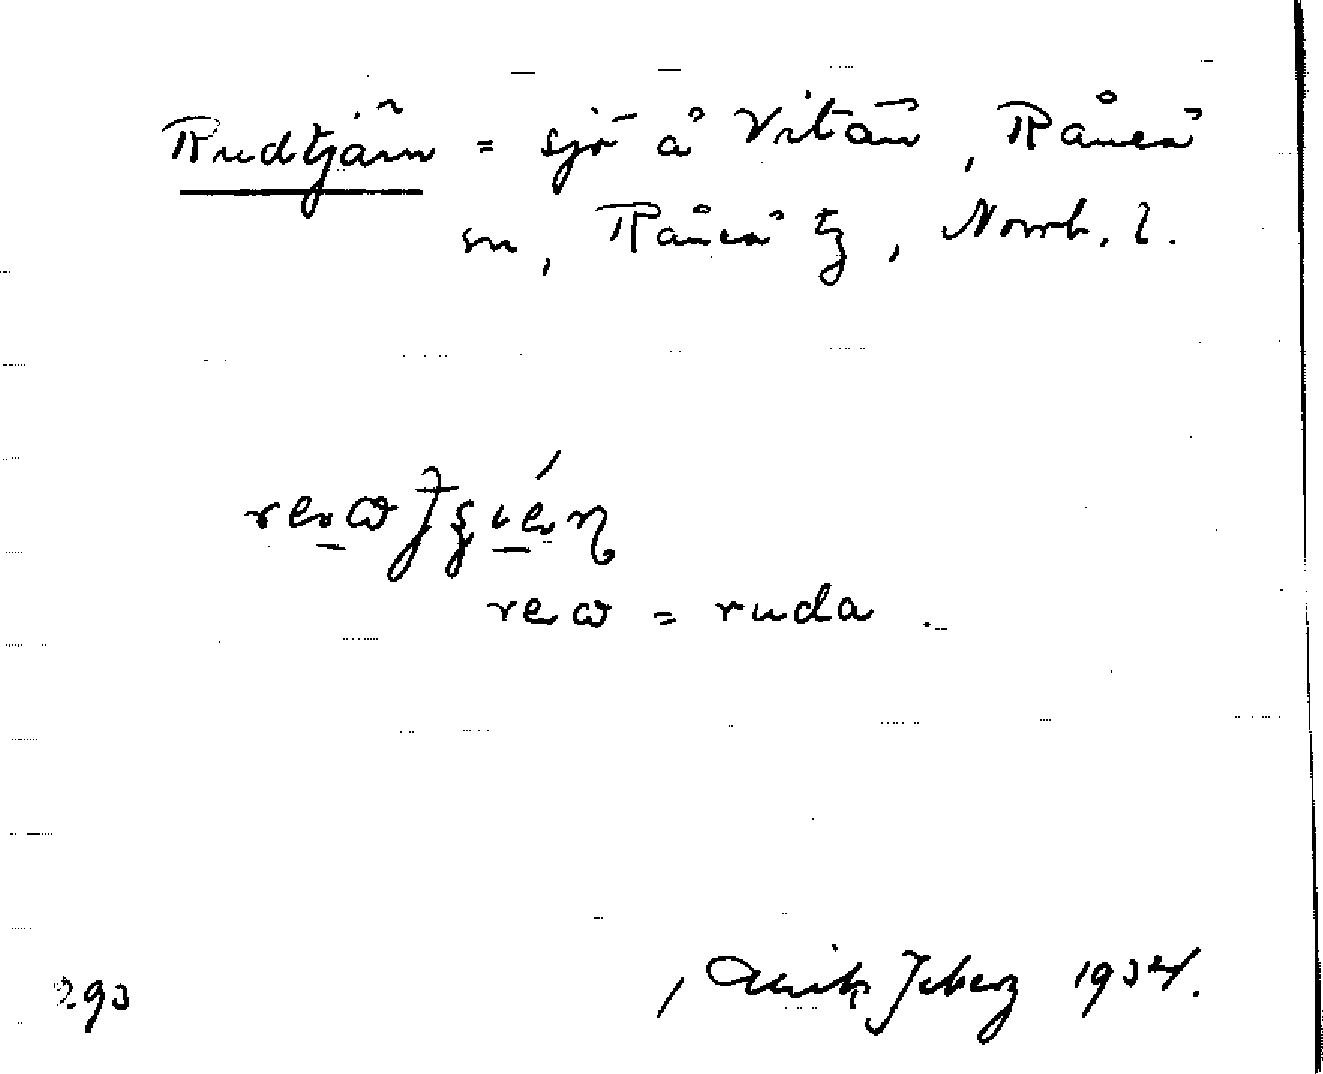 Rudtjärn = sjö å Vitån, Råneå
sn, Råneå tg, Norrb. l.
rew = ruda
293
1934.